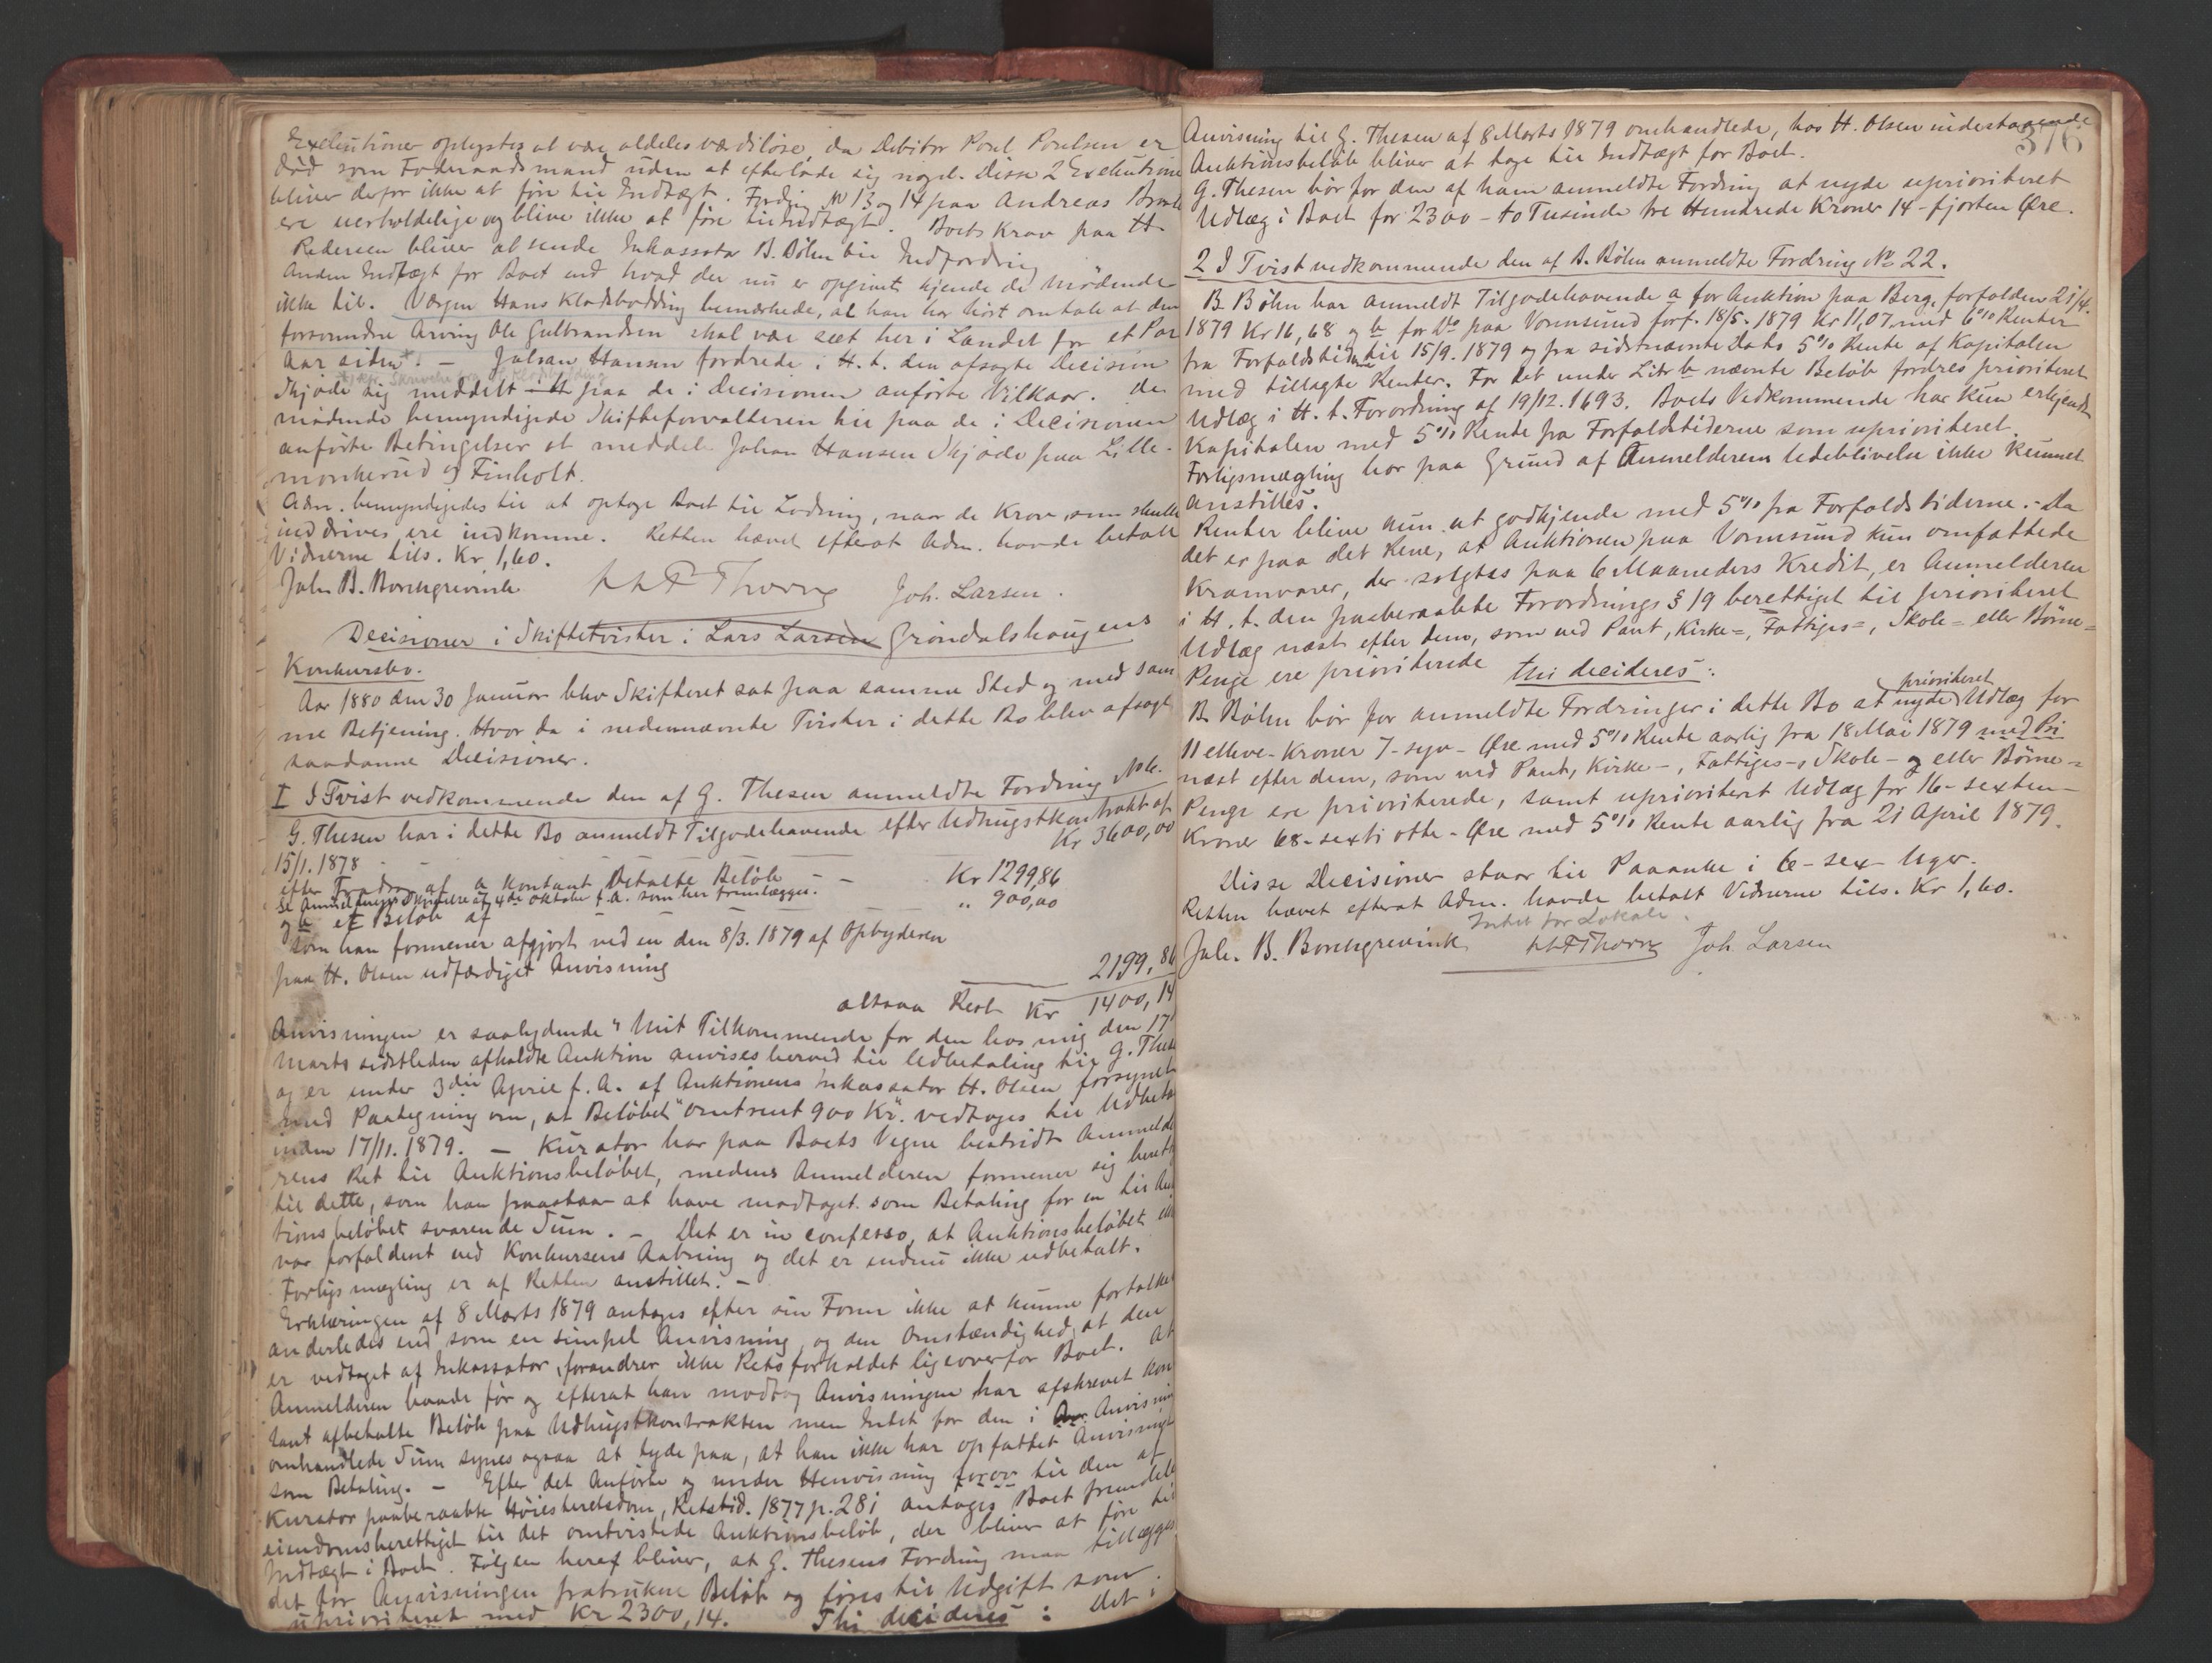 Exekutioner oplystes at være aldeles værdiløse, da Debitor Poul Poulsen er
død som Foderaadsmand uden at efterlade sig noget. Disse 2 Exekutioner
bliver derfor ikke at føre til Indtægt. Fordring No 13 og 14 paa Andreas
ere uerholdelige og blive ikke at føre til Indtægt. Boets Krav paa H.
Pedersen bliver at sende Inkassator B. Bøhn til Indfordring
Anden Indtægt for Boet end hvad der nu er opgivet kjende de mødende
ikke til. Værgen Hans Kladsbødding bemærkede, at han har hørt omtale at den
forsvundne Arving Ole Gulbrandsen skal være seet her i Landet for et Par
Aar siden*. – Johan Hansen fordrede i H. t. den afsagte Decision
*) kfr. Skrivelse fra Kladsbødding
Skjøde sig meddelt paa de i Decisionen anførte Vilkaar. De
mødende bemyndigede Skifteforvalteren til paa de i Decisionen
anførte Betingelser at meddele Johan Hansen Skjøde paa Lille-
morkerud og Finholt.
Adm. bemyndigedes til at optage Boet til Lodning, naar de Krav, som skulle
inddrives, ere indkomne. Retten hævet efterat Adm. havde betalt
Vidnerne tils. Kr 1,60.
Jul. B. Borchgrevink Thorn Joh. Larsen.
Decisioner i Skiftetvister i Lars Larsen Grøndalshaugens
Konkursbo.
Aar 1880 den 30 Januar blev Skifteret sat paa samme Sted og med sam
me Betjening. Hvor da i nedennævnte Tvister i dette Bo blev afsagt
saadanne Decisioner.
I I Tvist vedkommende den af G. Thesen anmeldte Fordring No 6.
G. Thesen har i dette Bo anmeldt Tilgodehavende efter Udhugstkontrakt af
15/1. 1878 – – – Kr 3600,00
efter Fradrag af a kontant betalte Beløb – – Kr 1299,86
se Anmeldelsens Skrivelse af 4de Oktober f. A. som her fremlægges.
og b et Beløb af „ 900,00
som han formener afgjort ved en den 8/3. 1879 af Opbyderen
paa H. Olsen udfærdiget Anvisning
2199,86
altsaa Rest Kr 1400,14
Anvisningen er saalydende "Mit Tilkommende for den hos mig den 17
Marts sidstleden afholdte Auktion anvises herved til Udbetaling til G. Thesen
og er under 3die April f. A. af Auktionens Inkassator H. Olsen forsynet
med Paategning om, at Beløbet "omtrent 900 Kr". vedtages til Udbeta
inden 17/11. 1879. – Kurator har paa Boets Vegne bestridt Anmelde
rens Ret til Auktionsbeløbet, medens Anmelderen formener sig berett
til dette, som han paastaar at have modtaget som Betaling for en til Auk
tionsbeløbet svarende Sum. – Det er in confesso, at Auktionsbeløbet ikke
var forfaldent ved Konkursens Aabning og det er endnu ikke udbetalt.
Forligsmægling er af Retten anstillet. –
Erklæringen af 8 Marts 1879 antages efter sin Form ikke at kunne fortolkes
anderledes end som en simpel Anvisning, og den Omstændighed, at den
er vedtaget af Inkassator, forandrer ikke Retsforholdet ligeoverfor Boet. At
Anmelderen baade før og efterat han modtog Anvisningen har afskrevet kon
tant afbetalte Beløb paa Udhugstkontrakten men Intet for den i Anvisning
omhandlede Sum synes ogsaa at tyde paa, at han ikke har opfattet Anvisningen
som Betaling. – Efter det Anførte og under Henvisning forøv. til den af
Kurator paaberaabte Høiesteretsdom, Retstid. 1877 p. 281 antages Boet fremdeles
eiendomsberettiget til det omtvistede Auktionsbeløb, der bliver at føre til
Indtægt i Boet. Følgen heraf bliver, at G. Thesens Fordring maa tillægges
det for Anvisningen fratrukne Beløb og føres til Udgift som
uprioriteret med Kr 2300,14. Thi decideres: Det i
376
Anvisning til G. Thesen af 8 Marts 1879 omhandlede, hos H. Olsen indestaaende
Auktionsbeløb bliver at tage til Indtægt for Boet.
G. Thesen bør for den af ham anmeldte Fordring at nyde uprioriteret
Udlæg i Boet for 2300 – to Tusinde tre Hundrede Kroner 14 – fjorten Øre.
2 I Tvist vedkommende den af B. Bøhn anmeldte Fordring No 22.
B. Bøhn har anmeldt Tilgodehavende a for Auktion paa Berg, forfalden 21/4.
1879 Kr 16,68 og b for Do paa Vormsund forf. 18/5. 1879 Kr 11,07 med 6% Renter
fra Forfaldstiden til 15/9. 1879 og fra sidstnævnte Dato 5% Rente af Kapitalen
med tillagte Renter. For det under Litr b nævnte Beløb fordres prioriteret
Udlæg i H. t. Forordning af 19/12. 1693. Boets Vedkommende har kun erkjendt
Kapitalen med 5% Rente fra Forfaldstiderne som uprioriteret.
Forligsmægling har paa Grund af Anmelderens Udeblivelse ikke kunnet
anstilles.
Renter blive kun at godkjende med 5% fra Forfaldstiderne. – Da
det er paa det Rene, at Auktionen paa Vormsund kun omfattede
Kramvarer, der solgtes paa 6 Maaneders Kredit, er Anmelderen
i H. t. den paaberaabte Forordnings § 19 berettiget til prioriteret
Udlæg næst efter dem, som ved Pant, Kirke-, Fattiges-, Skole- eller Børne-
Penge ere prioriterede thi decideres:
B. Bøhn bør for anmeldte Fordringer i dette Bo at nyde prioriteret Udlæg for
11 elleve- Kroner 7-syv- Øre med 5% Rente aarlig fra 18 Mai 1879 med Pri
næst efter dem, som ved Pant, Kirke-, Fattiges-, Skole- og eller Børne-
Penge ere prioriterede, samt uprioriteret Udlæg for 16-sexten-
Kroner 68-sexti otte- Øre med 5% Rente aarlig fra 21 April 1879.
Disse Decisioner staar til Paaanke i 6-sex- Uger.
Retten hævet efterat Adm. havde betalt Vidnerne tils. Kr 1,60.
Intet for Lokale.
Jul. B. Borchgrevink Thorn Joh. Larsen